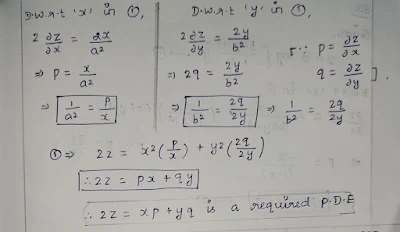 D.w.r.t 'x' in ①,
2 ∂z/∂x = 2x/a²
⇒ p = x/a²
⇒ 1/a² = p/x
D.w.r.t 'y' in ①,
2 ∂z/∂y = 2y/b²
⇒ 2q = 2y/b²
⇒ 1/b² = 2q/2y ⇒ 1/b² = 2q/2y
[∵ p = ∂z/∂x
q = ∂z/∂y ].
①⇒ 2z = x²(p/x) + y²(2q/2y)
∴ 2z = px + qy
∴ 2z = xp + yq is a required P.D.E